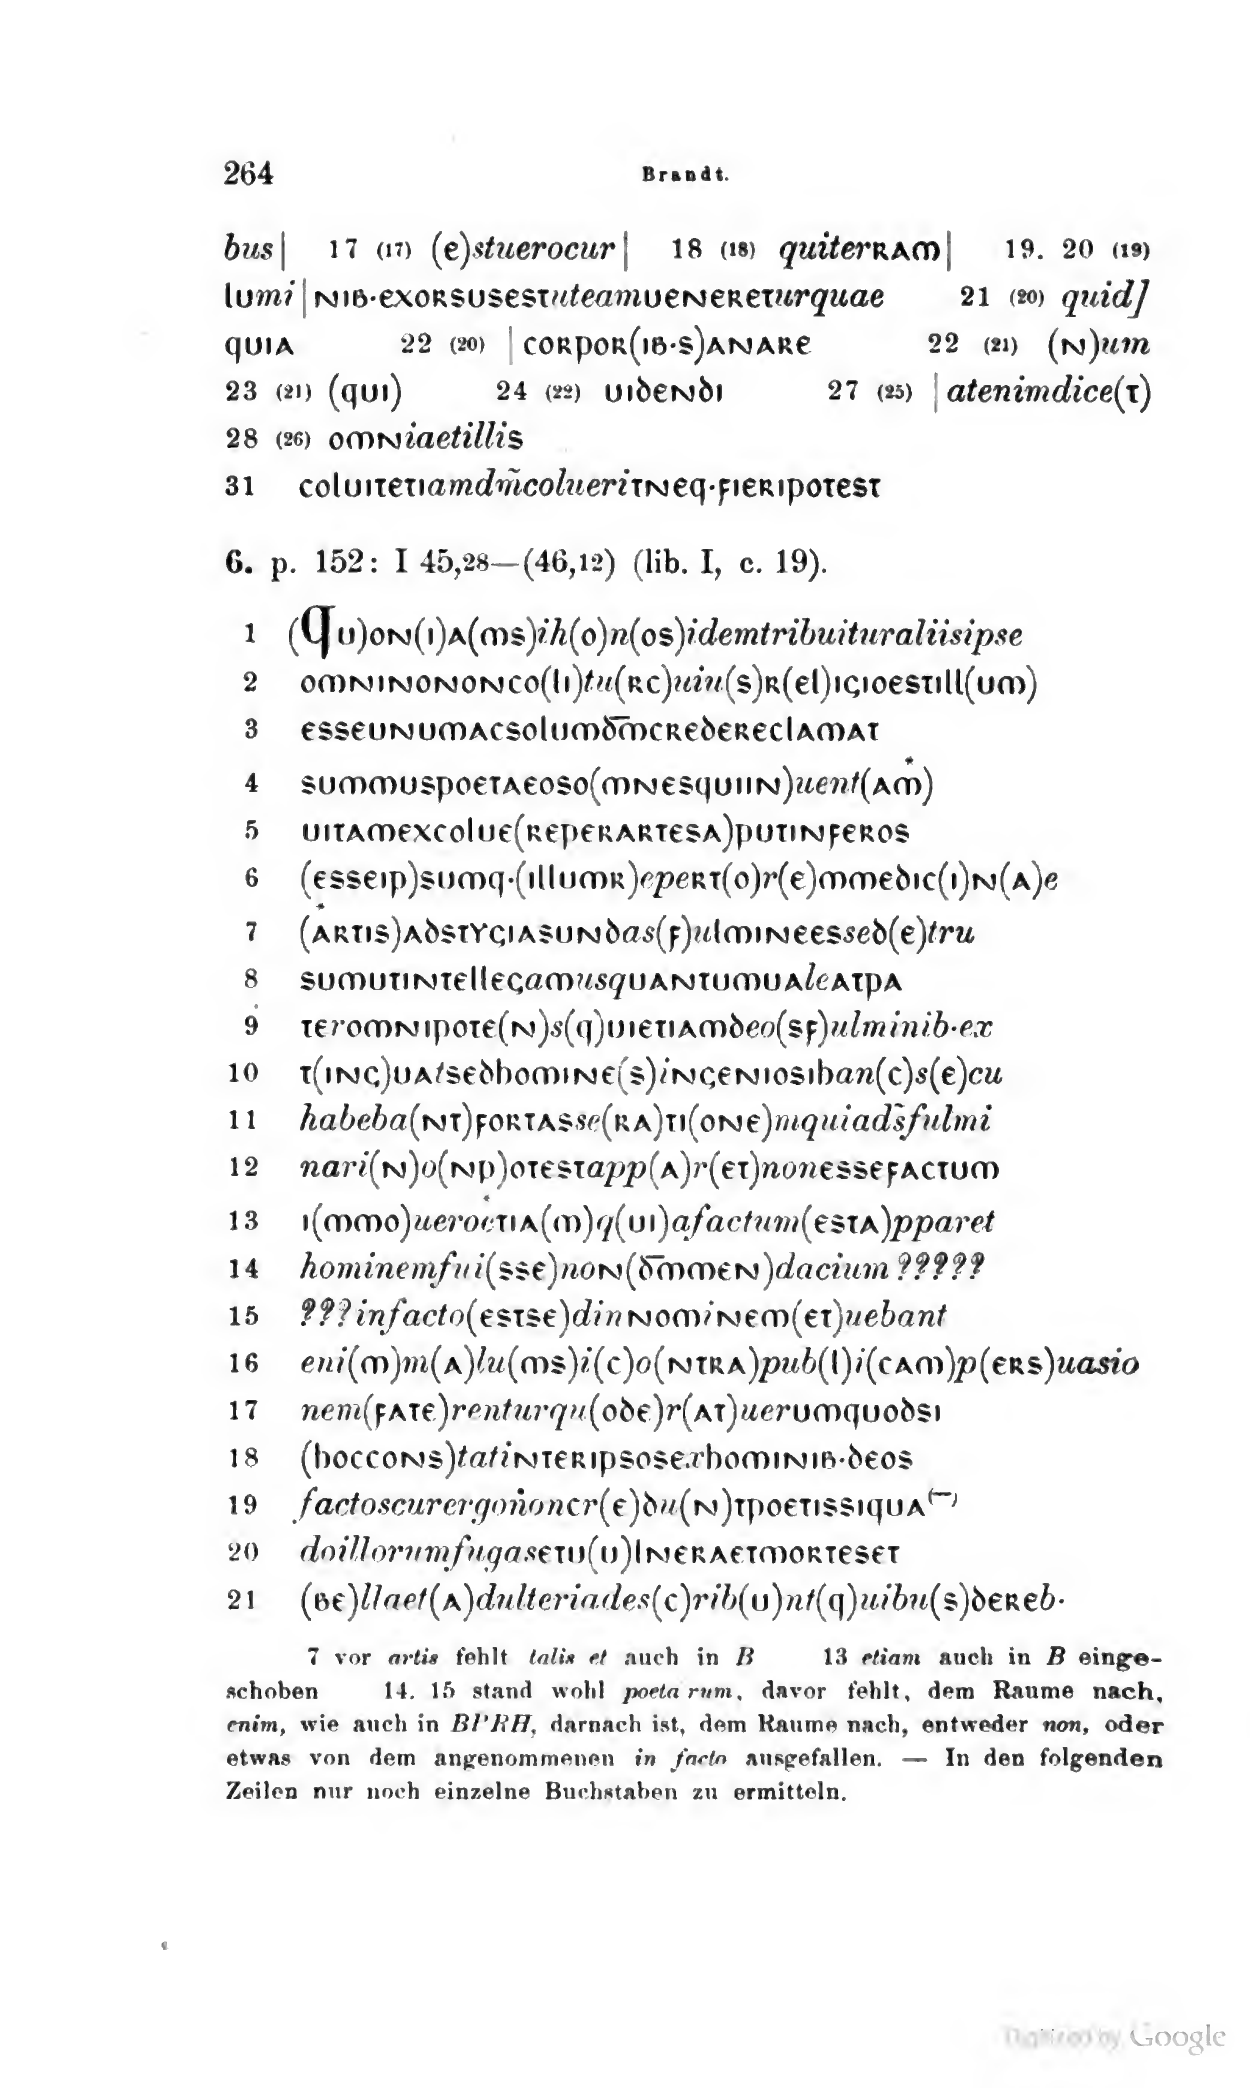 264 Brandt.
bus| 17 (17) (e)stuerocur| 18 (18) quiterRAm| 19. 20 (19)
lumi|NIB·exORSUSESTuteamUENERETurquae 21 (20) quid]
qUIA 22 (20) |CORpOR(IB·S)ANARE 22 (21) (N)um
23 (21) (qUI) 24 (22) UIdENdI 27 (25) |atenimdice(T)
28 (26) OmNiaetillis
31 COlUITETIamdm̃colueriTNEq·FIERIpOTEST
6. p. 152: I 45,28—(46,12) (lib. I, c. 19).
1 (QU)ON(I)A(mS)ih(o)n(os)idemtribuituraliisipse
2 OmNINONONCO(lI)tu(RC)uiu(S)R(El)IGIOESTIll(Um)
3 ESSEUNUmACSOlUmd̅m̅CREdERECLAmAT
4 SUmmUSpOETAEOSO(mNESqUIIN)uent(Am̊)
5 UITAmEXCOlUE(REpERARTESA)pUTINFEROS
6 (ESSEIp)SUmq·(IllUmR)epeRT(O)r(E)mmEdIC(I)N(A)e
7 (ȦRTIS)AdSTYGIASUNdas(F)ulmINEESsed(E)tru
8 SUmUTINTEllEGamusqUANTUmUAleATpA
9 TEromNIpOTE(N)s(q)UIETIAmdeo(SF)ulminib·ex
10 T(ING)UAtSEdhOmINE(S)iNGENIOSIhan(C)s(E)cu
11 habeba(NT)FORTASse(RA)TI(ONE)mquiads̄fulmi
12 nari(N)o(Np)OTESTapp(A)r(ET)nonESSEFACTUm
13 I(mmO)ueroeTIA(m)q(UI)afactum(ESTA)pparet
14 hominemfui(SSE)noN(d̅m̅mEN)dacium?????
15 ???infacto(ESTSE)dinNOmiNEm(ET)uebant
16 eni(m)m(A)lu(mS)i(C)o(NTRA)pub(l)i(CAm)p(ERS)uasio
17 nem(FATE)renturqu(OdE)r(AT)uerUmqUOdSI
18 (hOCCONS)tatiNTERIpSOSExhOmINIB·dEOS
19 factoscurergoñoncr(E)du(N)TpOETISSIqUA(—)
20 doillorumfugasETU(U)lNERAETmORTESET
21 (BE)llaet(A)dulteriades(C)rib(U)nt(q)uibu(S)dEREb·
7 vor artis fehlt talis et auch in B 13 etiam auch in B einge-
schoben 14. 15 stand wohl poeta rum, davor fehlt, dem Raume nach,
enim, wie auch in BPRH, darnach ist, dem Raume nach, entweder non, oder
etwas von dem angenommenen in facto ausgefallen. — In den folgenden
Zeilen nur noch einzelne Buchstaben zu ermitteln.
Digitized by Google